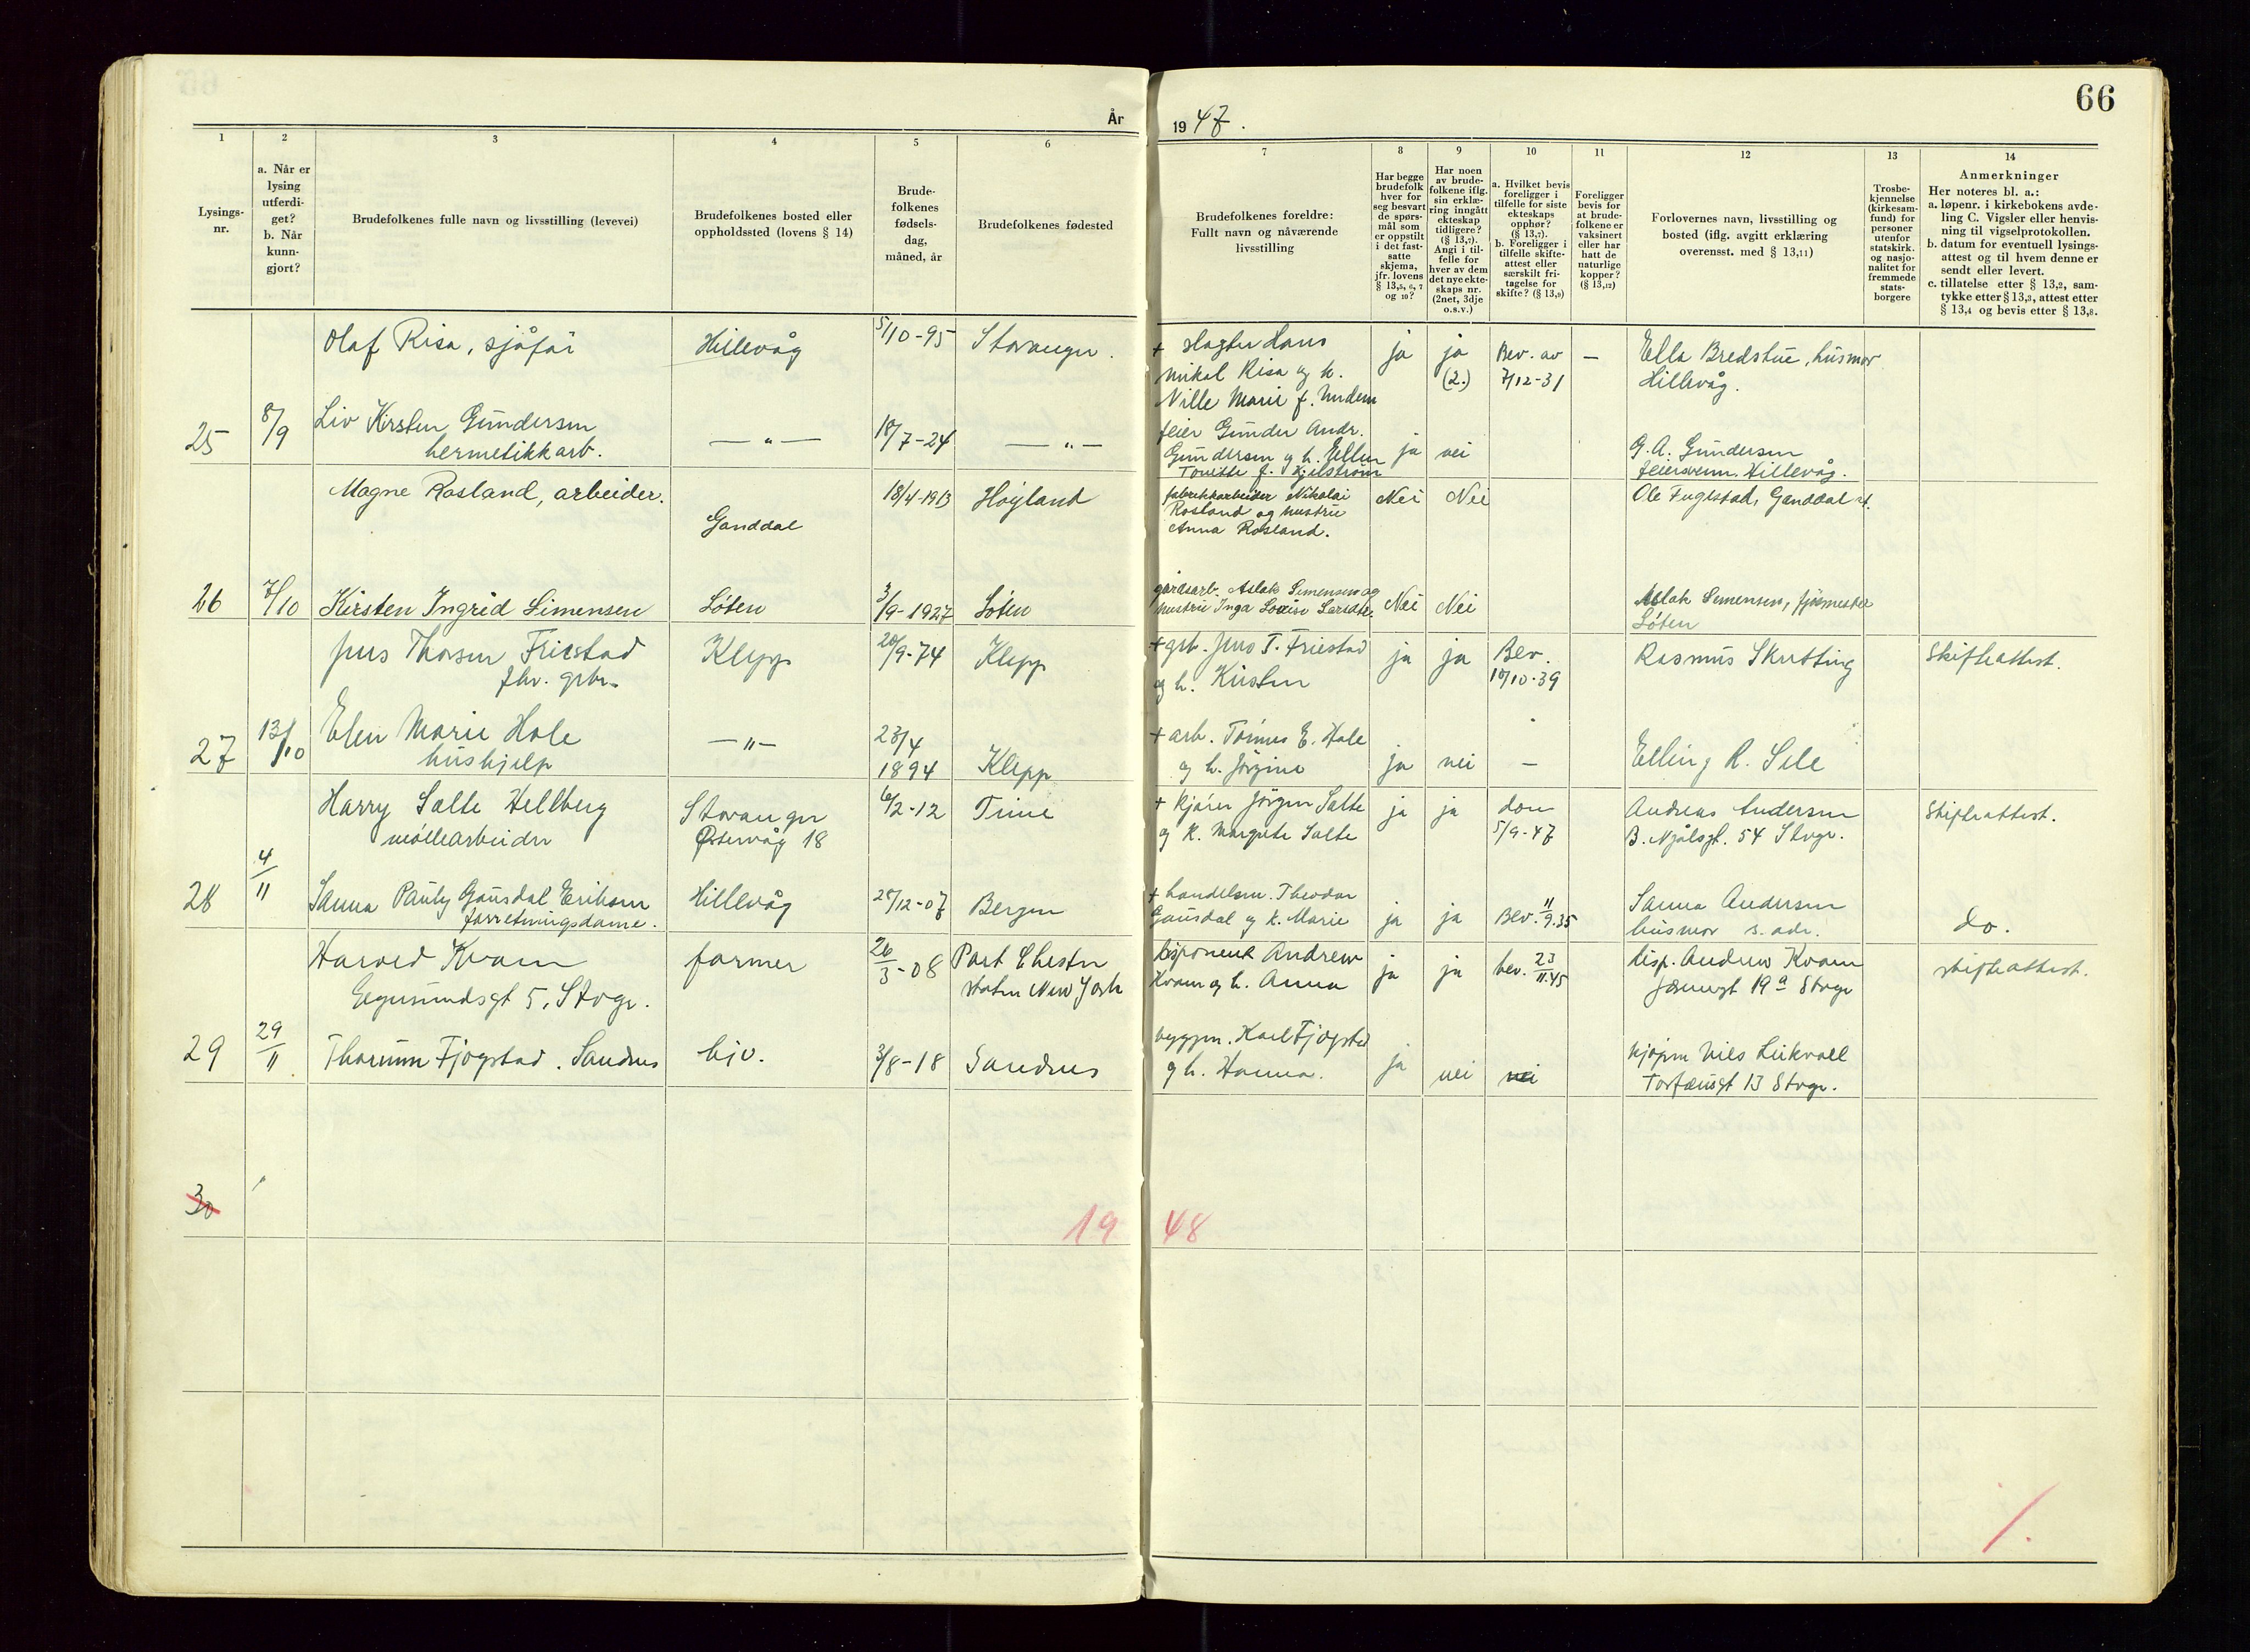 66
År
19 47.
1
2
3
4
5
6
7
8
9
10
11
12
13
14
Lysings-
nr.
a. Når er
lysing
utferdi-
get?
b. Når
kunn-
gjort?
Brudefolkenes fulle navn og livsstilling (levevei)
Brudefolkenes bosted eller
oppholdssted (lovens § 14)
Brude-
folkenes
fødsels-
dag,
måned, år
Brudefolkenes fødested
Brudefolkenes foreldre:
Fullt navn og nåværende
livsstilling
Har begge
brudefolk
hver for
seg besvart
de spørs-
mål som
er oppstilt
i det fast-
satte
skjema,
jfr. lovens
§ 13,5, 6, 7
og 10?
Har noen
av brude-
folkene iflg.
sin erklæ-
ring inngått
ekteskap
tidligere?
(§ 13,7).
Angi i til-
felle for
hver av dem
det nye ekte-
skaps nr.
(2net, 3dje
o.s.v.)
a. Hvilket bevis
foreligger i
tilfelle for siste
ekteskaps
opphør?
(§ 13,7).
b. Foreligger i
tilfelle skifte-
attest eller
særskilt fri-
tagelse for
skifte? (§ 13,9)
Foreligger
bevis for
at brude-
folkene er
vaksinert
eller har
hatt de
naturlige
kopper?
(§ 13,12)
Forlovernes navn, livsstilling og
bosted (iflg. avgitt erklæring
overensst. med § 13,11)
Trosbe-
kjennelse
(kirkesam-
fund) for
personer
utenfor
statskirk.
og nasjo-
nalitet for
fremmede
stats-
borgere
Anmerkninger
Her noteres bl. a.:
a. løpenr. i kirkebokens avde-
ling C. Vigsler eller henvis-
ning til vigselprotokollen.
b. datum for eventuell lysings-
attest og til hvem denne er
sendt eller levert.
c. tillatelse etter § 13,2, sam-
tykke etter § 13,3, attest etter
§ 13,4 og bevis etter § 13,8.
Olaf Risa, sjåfør
Hillevåg
5/10-95
Stavanger.
+ slagter Hans
Mikal Risa og h.
Nille Marie f.
ja
ja
(2.)
Bev. av
7/12-31
—
Ella Bredstue, husmor
Hillevåg.
25
8/9
Liv Kirsten Gundersen
hermetikkarb.
— " —
10/7-24
— " —
feier Gunder Andr.
Gundersen og h. Ellen
Tomine f. Kjelstrøm
ja
nei
G. A. Gundersen
feiersvenn. Hillevåg.
Magne Rosland, arbeider.
Ganddal
18/4-1913
Høyland
fabrikkarbeider Nikolai
Rosland og hustru
Anna Rosland.
Nei
Nei
Ole Fuglestad, Ganddal st.
26
7/10
Kirsten Ingrid Simensen
Løten
3/9-1927
Løten
gårdsarb. Aslak Simensen og
hustru Inga Lovise Larsdtr.
Nei
Nei
Aslak Simensen, fjøsmester
Løten
Jens Thorsen Friestad
fhv. grbr.
Klepp
20/9-74
Klepp
+ grb. Jens T. Friestad
og h. Kirsten
ja
ja
Bev.
10/10-39
Rasmus Skretting
Skifteattest.
27
13/10
Elen Marie Hole
hushjelp
— " —
23/4
1894
Klepp
+ arb. Tønnes E. Hole
og h. Jørgine
ja
nei
—
Elling R. Sele
Harry Salte Hellberg
møllearbeider
Stavanger
Østervåg 18
6/2-12
Time
+ kjører Jørgen Salte
og h. Margrete Salte
ja
ja
dom
5/9-47
Andreas Andersen
B. Njålsgt. 54 Stvgr.
Skifteattest.
28
4/11
Sanna Pauly Gausdal Eriksen
forretningsdame.
Hillevåg
27/12-07
Bergen
+ handelsm. Theodor
Gausdal og h. Marie
ja
ja
Bev. 11/9.35
Sanna Andersen
husmor s. adr.
do.
Harved Kvam
Egersundsgt 5, Stvgr.
farmer
26/3-08
Port Chester
staten New York
disponent Andrew
Kvam og h. Anna
ja
ja
bev. 23/11.45
disp. Andrew Kvam
Jærengt 19a Stvgr
skifteattest.
29
29/11
Fjogstad. Sandnes
hjv.
3/8-18
Sandnes
byggm. Karl Fjogstad
og h. Hanna.
ja
nei
nei
kjøpm Nils Leikvoll
Torfæusgt 13 Stvgr.
30
19 48